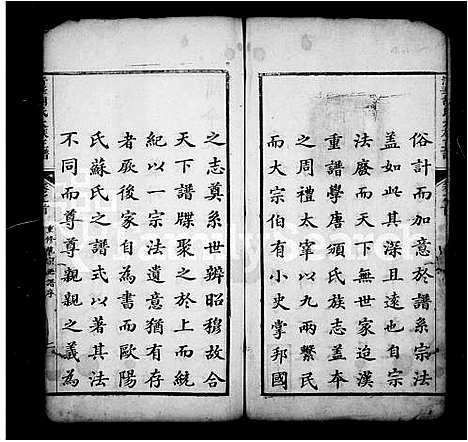 俗計而加意於譜系宗法
蓋如此其深且遠也自宗
法廢而天下無世家迨漢
重譜學唐頒氏族志蓋本
之周禮太宰以九兩繫民
太宗伯有小史掌邦國
之志奠系世辨昭穆故合
天下譜牒聚之於上而統
紀以一宗法遺意猶有存
者厥後家自為書而歐陽
氏蘇氏之譜式以著其法
不同而尊尊親親之義為